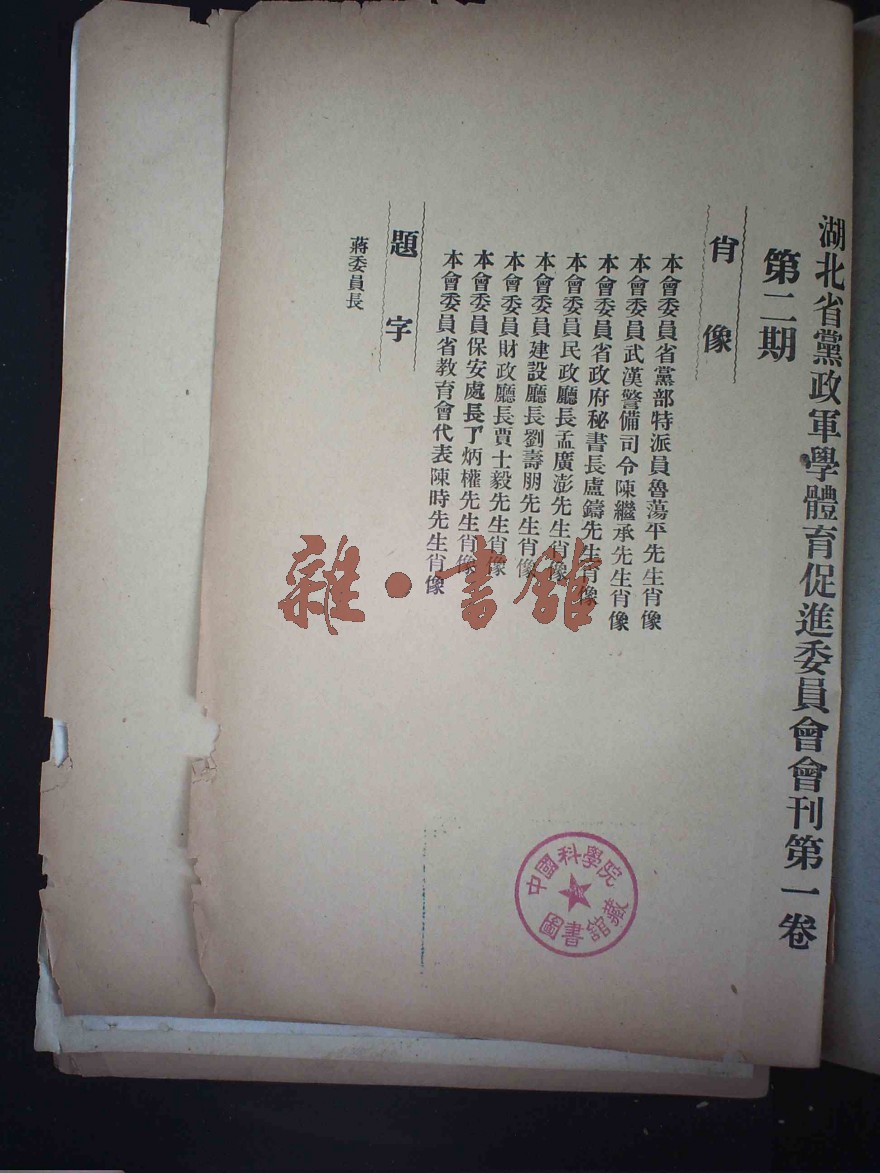 湖北省黨政軍學體育促進委員會會刊第一卷
第二期
肖像
本會委員省黨部特派員魯蕩平先生肖像
本會委員武漢警備司令陳繼承先生肖像
本會委員省政府秘書長盧鑄先生肖像
本會委員民政廳長孟廣澎先生肖像
本會委員建設廳長劉壽朋先生肖像
本會委員財政廳長賈士毅先生肖像
本會委員保安處長丁炳權先生肖像
本會委員省教育會代表陳時先生肖像
題字
蔣委員長
雜·書館
中國科學院
圖書館藏